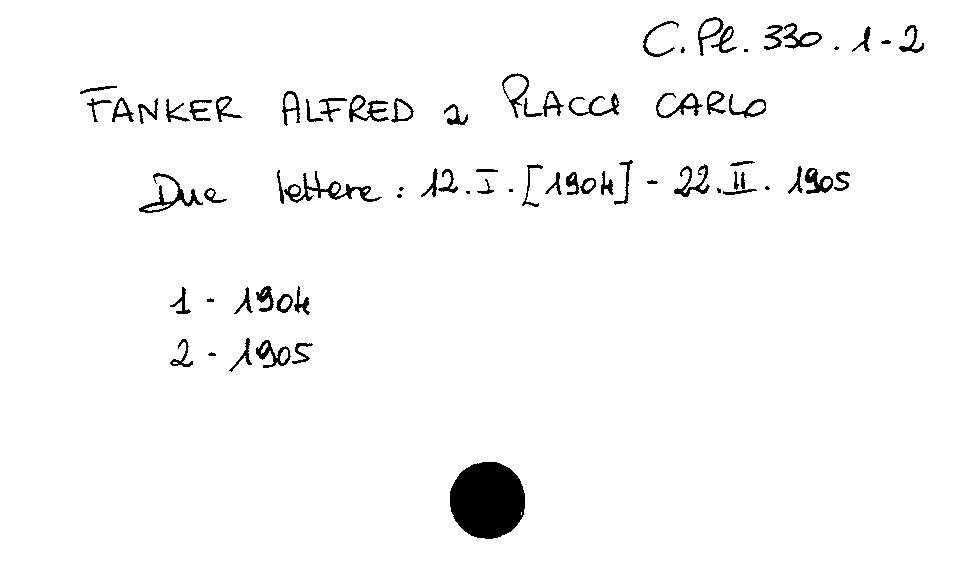 C.Pl. 330. 1-2
FANKER ALFRED a PLACCI CARLO
Due lettere: 12.I.[1904] - 22.II.1905
1 - 1904
2 - 1905